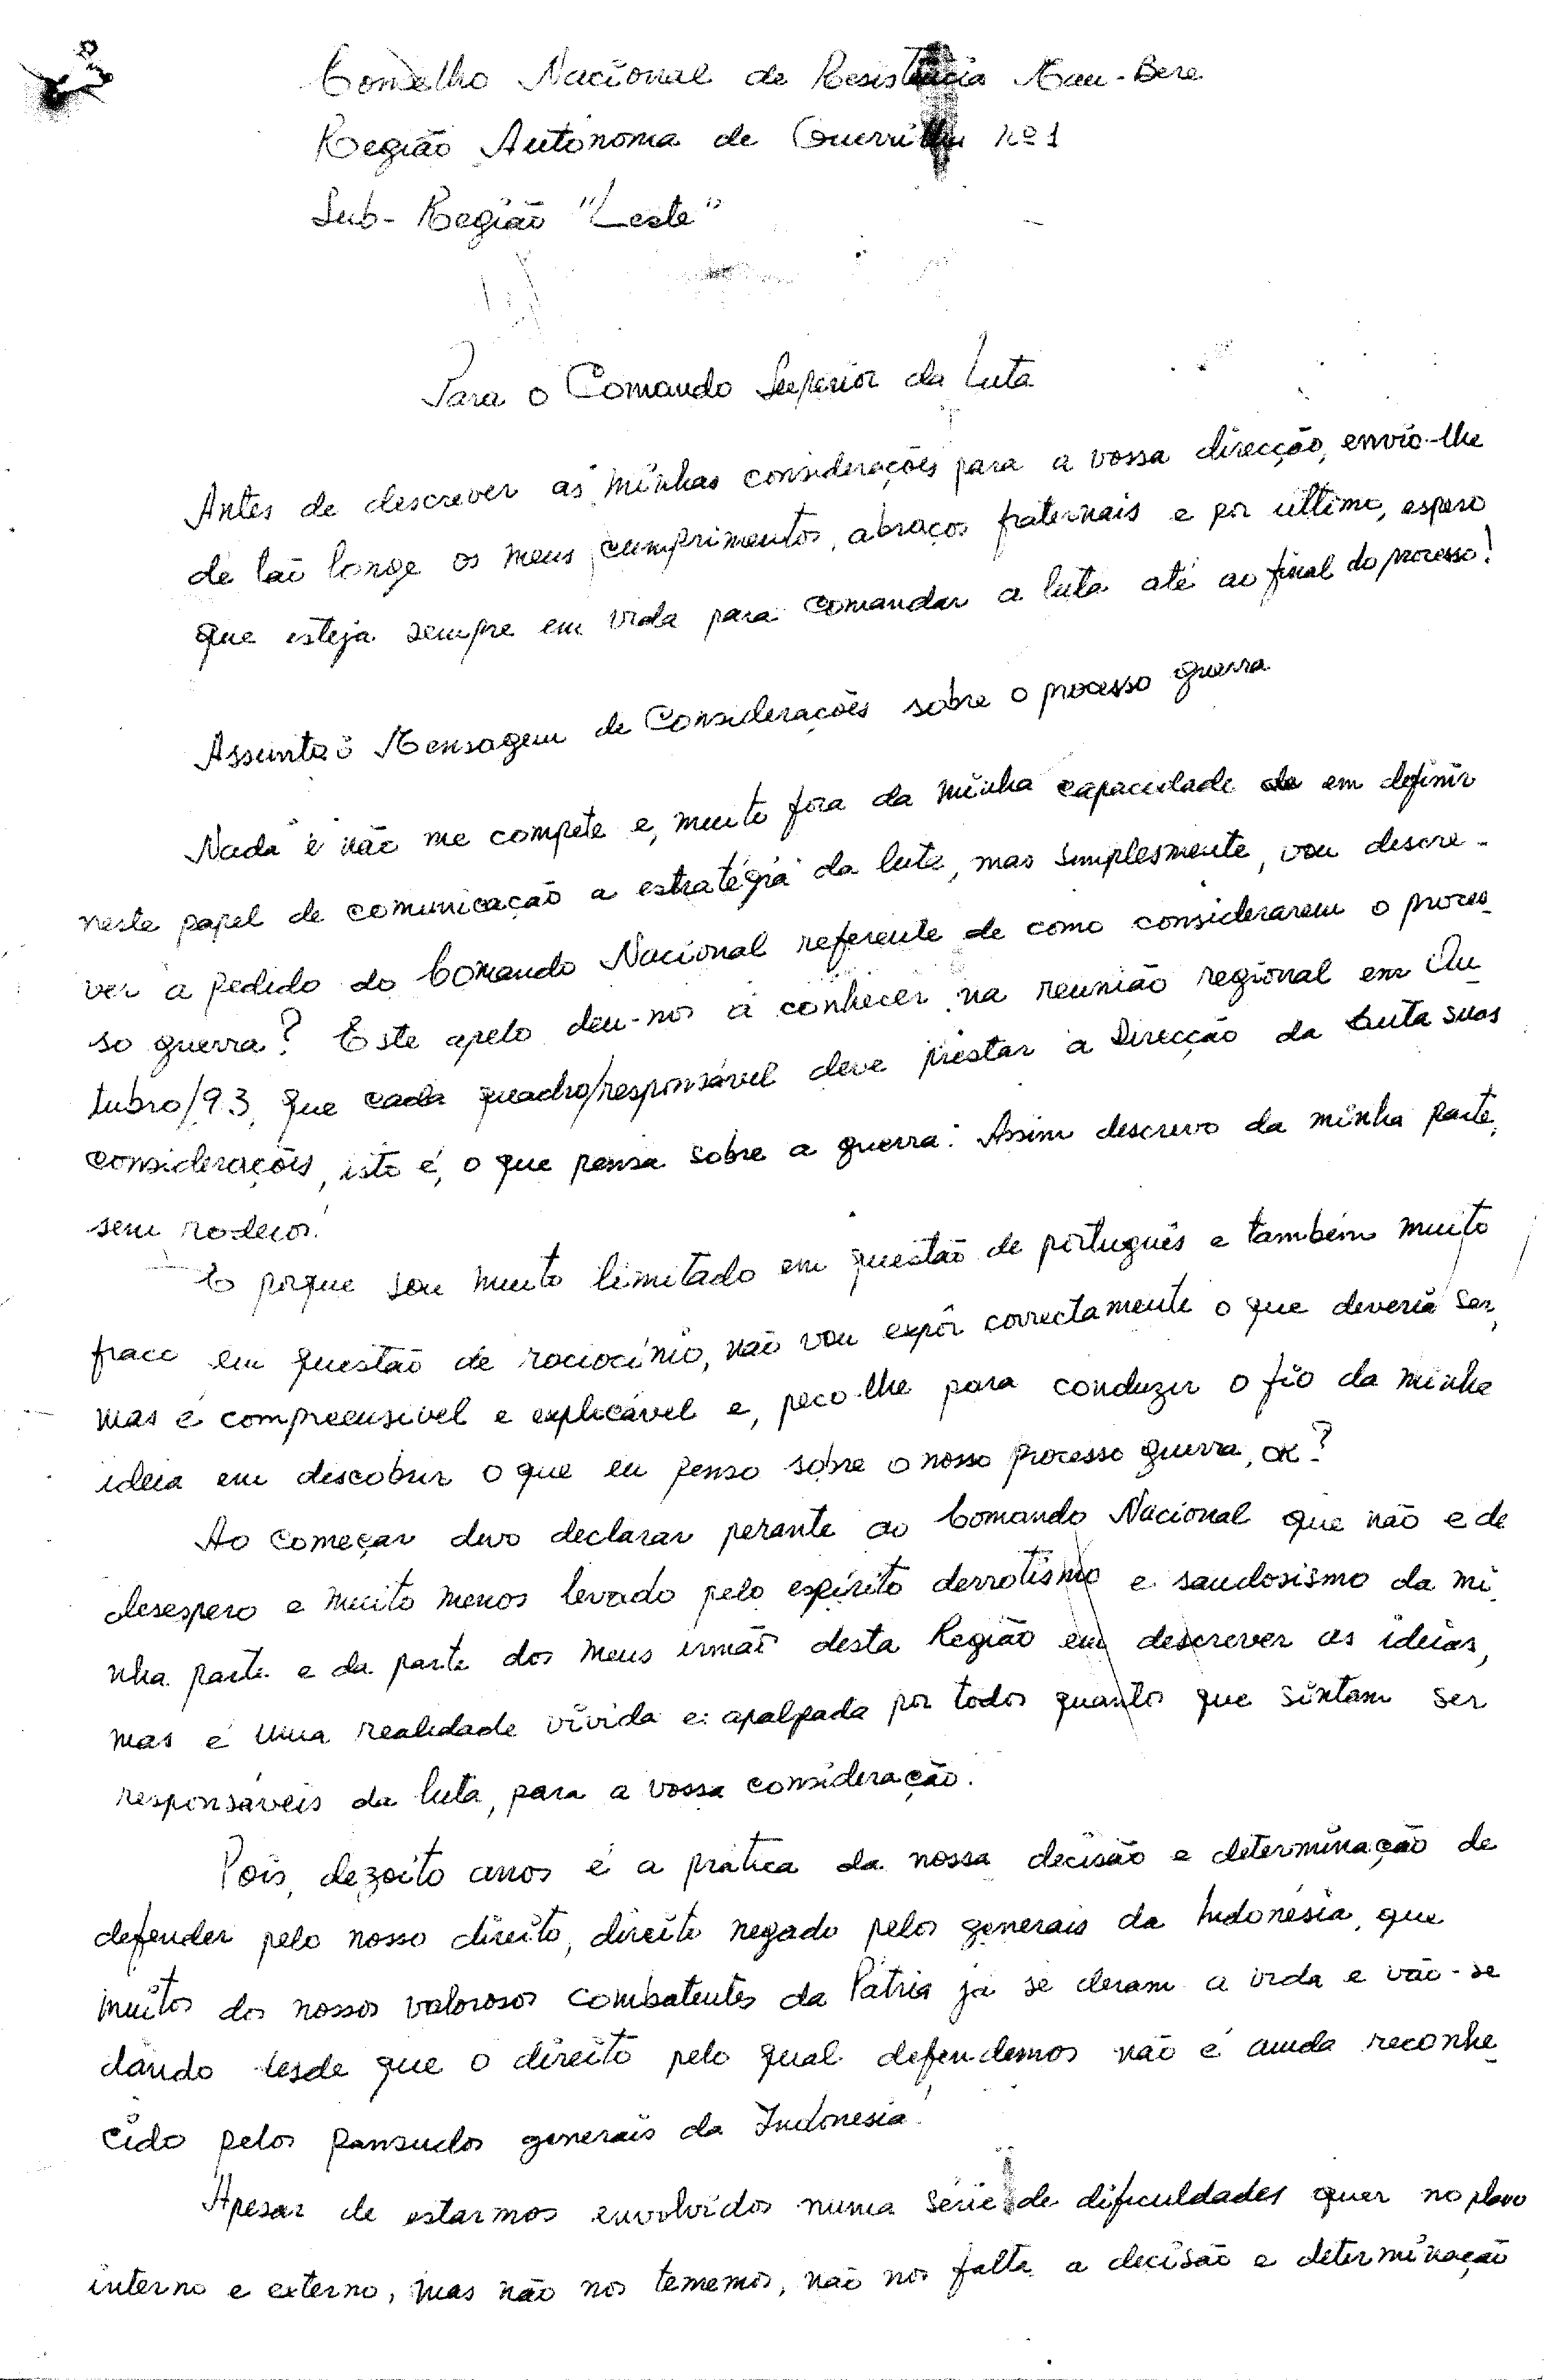 Conselho Nacional de Resistência Mau-Bere
Região Autónoma de Guerrilha nº 1
Sub-Região "Leste"
Para o Comando Superior da Luta
Antes de descrever as minhas considerações para a vossa direcção, envio-lhe
de tão longe os meus cumprimentos, abraços fraternais e por ultimo, espero
que esteja sempre em vida para comandar a luta até ao final do processo!
Assunto: Mensagem de Considerações sobre o processo guerra
Nada é não me compete e, muito fora da minha capacidade de em definir
neste papel de comunicação a estratégia da luta, mas simplesmente, vou descre-
ver a pedido do Comando Nacional referente de como considerarem o proces-
so guerra? Este apelo deu-nos a conhecer na reunião regional em Ou-
tubro/93, que cada quadro/responsável deve prestar a Direcção da Luta suas
considerações, isto é, o que pensa sobre a guerra. Assim descrevo da minha parte,
sem rodeios!
E porque sou muito limitado em questão de português e também muito
fraco em questão de raciocínio, não vou expôr correctamente o que deveria ser,
mas é compreensivel e explicável e, peço-lhe para conduzir o fio da minha
ideia em descobrir o que eu penso sobre o nosso processo guerra, ok?
Ao começar devo declarar perante ao Comando Nacional que não e de
desespero e muito menos levado pelo espírito derrotismo e saudosismo da mi-
nha parte e da parte dos meus irmãos desta Região em descrever as ideias,
mas é uma realidade vivida e apalpada por todos quantos que sintam ser
responsáveis da luta, para a vossa consideração.
Pois, dezoito anos é a prática da nossa decisão e determinação de
defender pelo nosso direito, direito negado pelos generais da Indonésia, que
muitos dos nossos valorosos combatentes da Pátria já se deram a vida e vão-se
dando desde que o direito pelo qual defendemos não é ainda reconhe-
cido pelos pansudos generais da Indonesia!
Apesar de estarmos envolvidos numa série de dificuldades quer no plano
interno e externo, mas não nos tememos, não nos falta a decisão e determinação